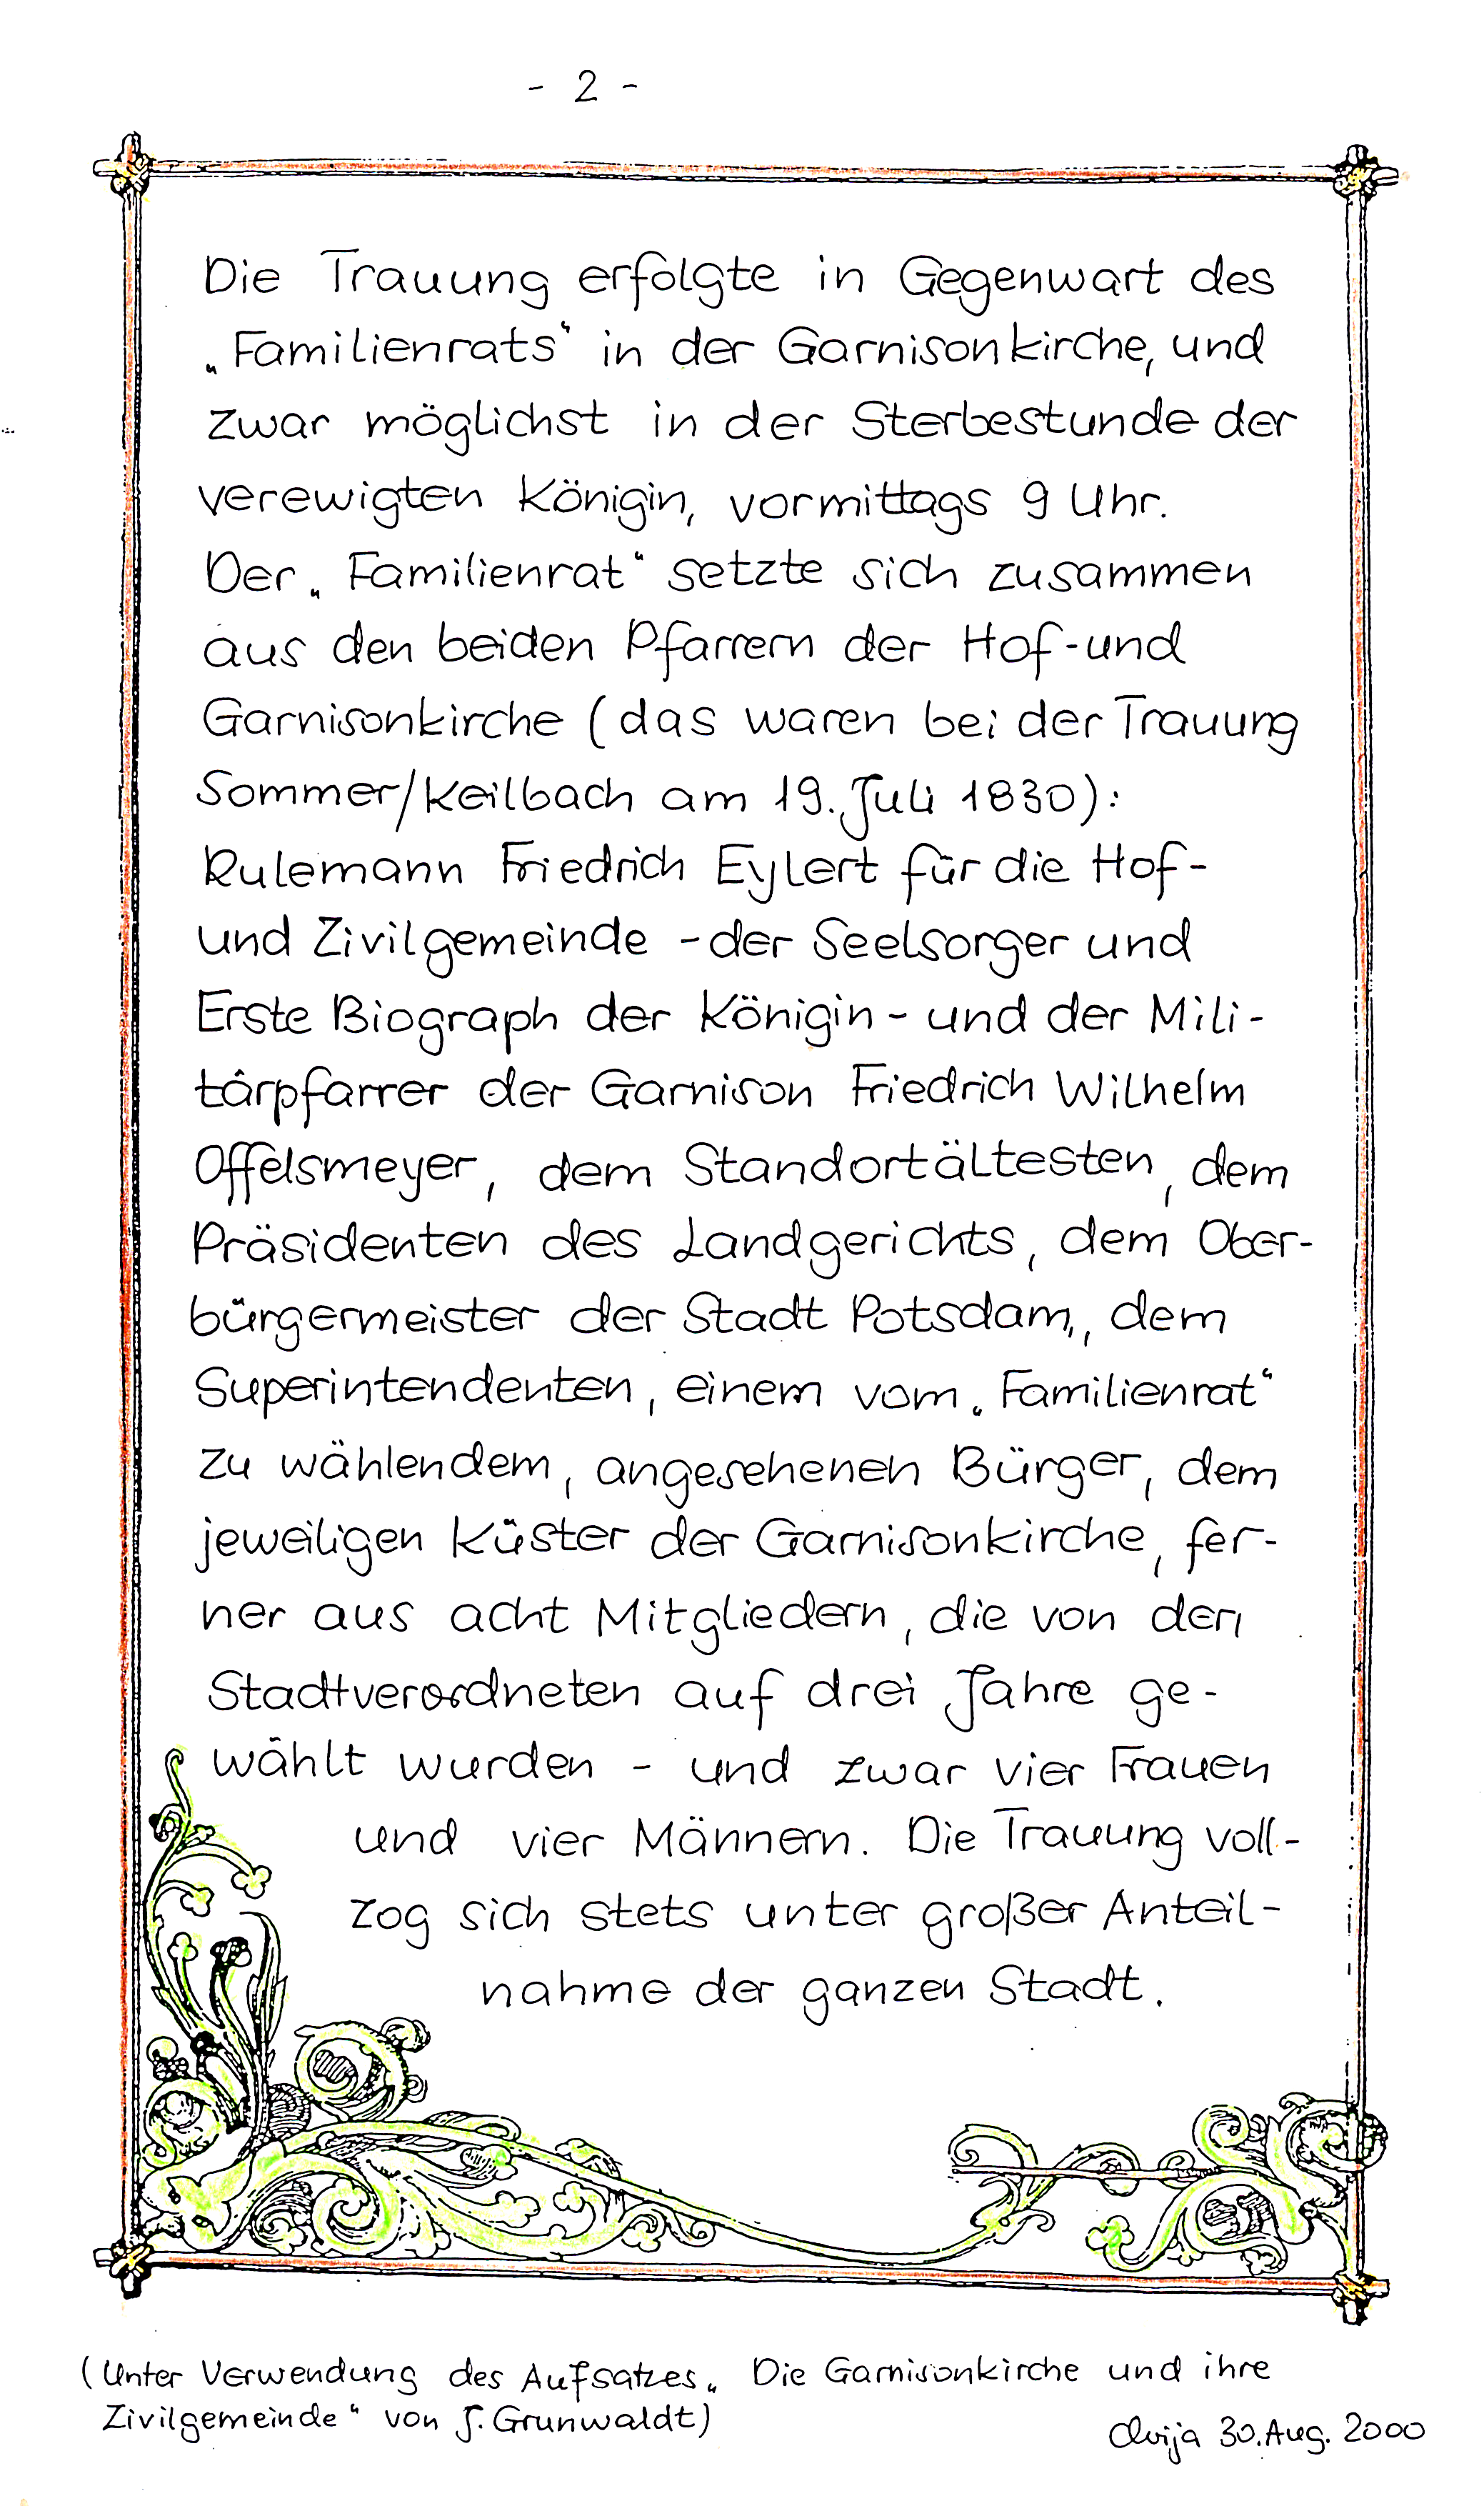 - 2 -
Die Trauung erfolgte in Gegenwart des
„Familienrats“ in der Garnisonkirche, und
zwar möglichst in der Sterbestunde der
verewigten Königin, vormittags 9 Uhr.
Der „Familienrat“ setzte sich zusammen
aus den beiden Pfarrern der Hof-und
Garnisonkirche (das waren bei der Trauung
Sommer/Keilbach am 19. Juli 1830):
Rulemann Friedrich Eylert für die Hof-
und Zivilgemeinde - der Seelsorger und
Erste Biograph der Königin - und der Mili-
tärpfarrer der Garnison Friedrich Wilhelm
Offelsmeyer, dem Standortältesten, dem
Präsidenten des Landgerichts, dem Ober-
bürgermeister der Stadt Potsdam, dem
Superintendenten, einem vom „Familienrat“
zu wählendem, angesehenen Bürger, dem
jeweiligen Küster der Garnisonkirche, fer-
ner aus acht Mitgliedern, die von den
Stadtverordneten auf drei Jahre ge-
wählt wurden - und zwar vier Frauen
und vier Männern. Die Trauung voll-
zog sich stets unter großer Anteil-
nahme der ganzen Stadt.
(Unter Verwendung des Aufsatzes „Die Garnisonkirche und ihre
Zivilgemeinde“ von J. Grunwaldt)
30. Aug. 2000